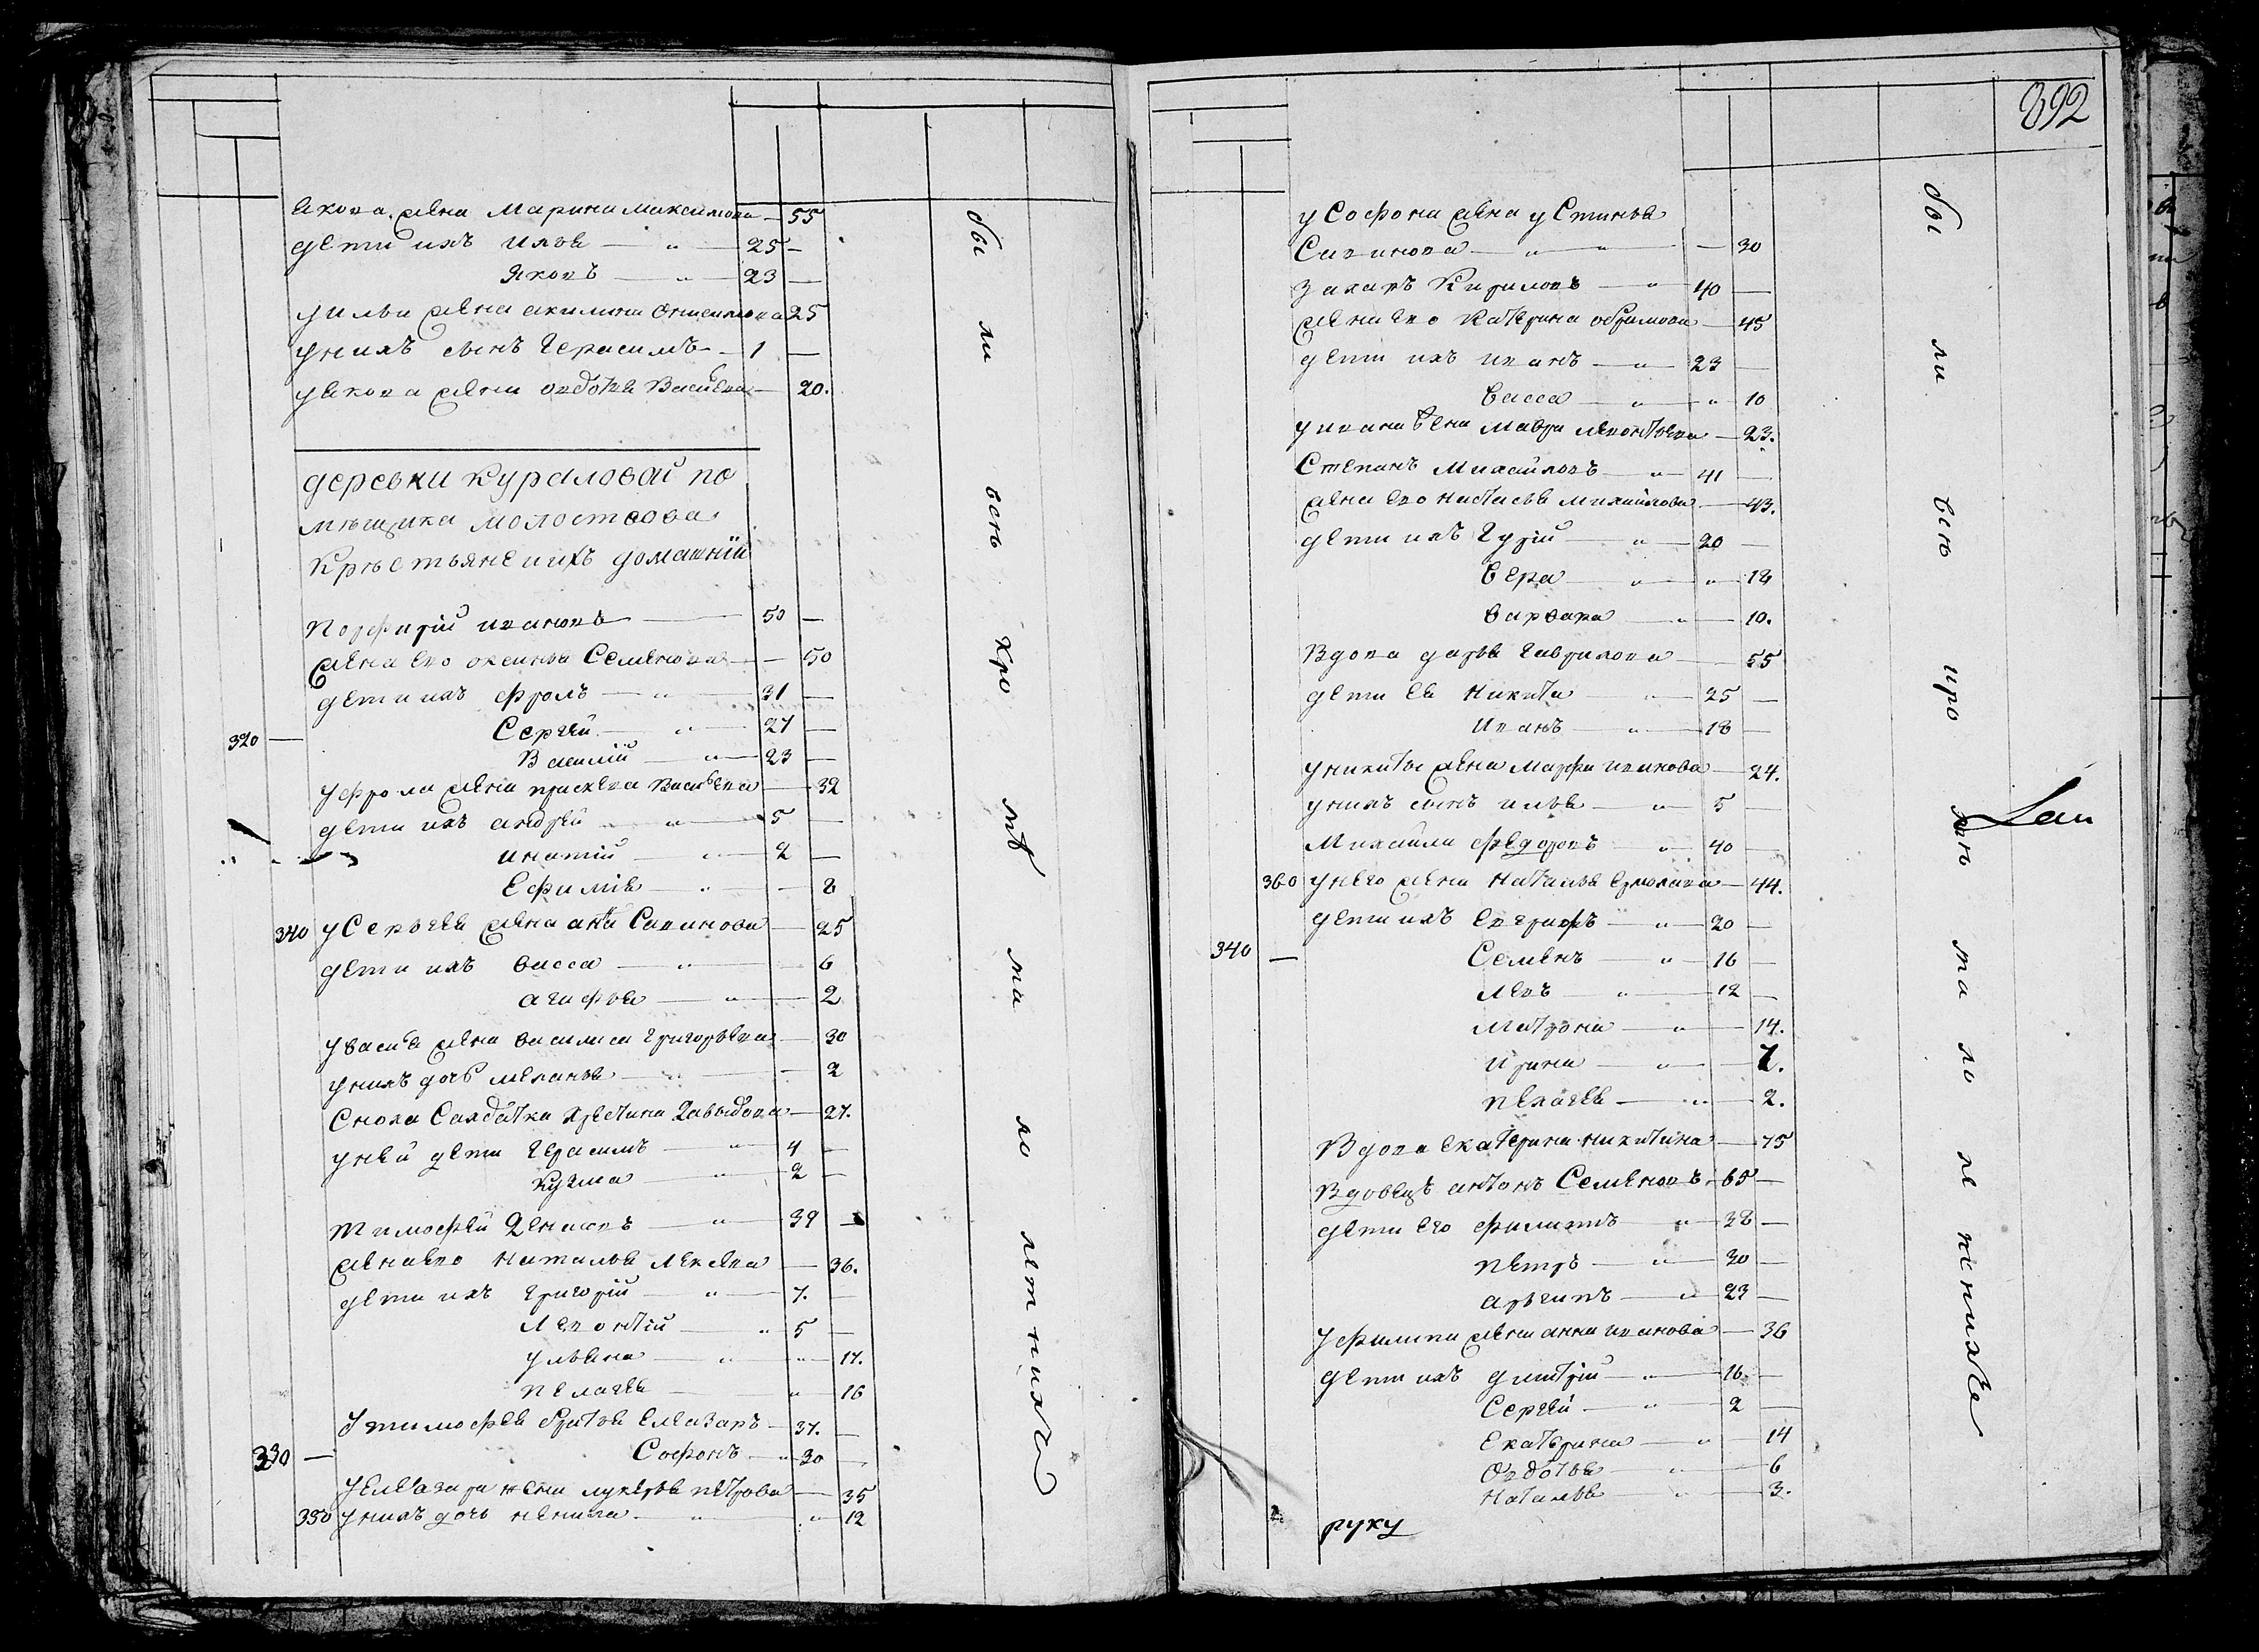 Якова жена Марина Максимова — 55
дети ихъ Илья — " — 25 —
Яковъ — " — 23 —
у Ильи жена Акилина Онисимова 25
у нихъ сынъ Герасимъ — 1 —
у Якова жена Овдотья Васильева — 20.
деревни Кураловай по
мѣщика Молоствова
крѣстьяне и ихъ домашнїи
Порфирїй Ивановъ — 50 —
жена ево Оксинья Семенова — 50
дети ихъ Фролъ — " — 31 —
Сергѣй — " — 27 —
320 —
Василїй — " — 23 —
у Фрола жена Прасковa Васильева — 32
дети ихъ Андрей — " — 5 —
Игнатїй — " — 2 —
Ефимїя — " — 8
340 у Сергея жена Анна Савинова — 25
дети ихъ Васса — " — 6
Агафья — " — 2
у Василья жена Василиса Григорьева — 30
у нихъ дочь Меланья — " — 2
Сноха Салдатка Христина Давыдова — 27.
у ней дети Герасимъ — " — 4 —
Кузма — " — 2 —
Тимофей Денисовъ — " — 39 —
жена ево Наталья Алексеева — 36.
дети ихъ Григорїй — " — 7. —
Леонтїй — " 5 —
Ульяна — " — " — 17.
Пелагея — " 16
у Тимофея братья Елеазаръ — 37. —
330 — Софонъ — " 30 —
у Елеазара жена Лукерья Петрова — 35
350 у нихъ дочь Ненила — " — " 12
бы ли всѣ хро мѣ ма ло лет нихъ
892
у Софона жена Устинья
Савинова — " — " — 30
Захаръ Кириловъ — " 40 —
жена ево Катерина Ефимова — 45
дети ихъ Иванъ — " — 23 —
Васса — " — " 10
у Ивана жена Мавра Леонтьева — 23.
Степанъ Михайловъ — " — 41 —
жена ево Настасья Михайлова — 43.
дети ихъ Гурїй — " — 20 —
Вера — " — " — 18
Варвара — " — 10.
Вдова Дарья Гаврилова — 55
дети ея Никита — " — 25 —
Иванъ — " — 18 —
у Никиты жена Марфа Иванова — 24.
у нихъ сынъ Илья — " — 5 —
Михайла Федоровъ — " 40 —
360 у него жена Наталья Ермолаева — 44.
дети ихъ Евграфъ — " — 20 —
340 — Семенъ — " — 16 —
Левъ — " — 12 —
Матрона — " — 14.
Ирина — " — 7.
Пелагея — " — 2.
Вдова Екатерина Никитина — 75
Вдовецъ Антонъ Семеновъ 65 —
дети его Филиппъ — " 38 —
Петръ — " — 30 —
Архипъ — " — 23 —
у Филипа жена Анна Иванова — 36
дети ихъ Дмитрїй — " — 16 —
Сергей — " — 2 —
Екатерина — " — 14
Овдотья — " — 6
Наталья — " — 3.
руку
бы ли всѣ кро мѣ ма ло ле тнихъ